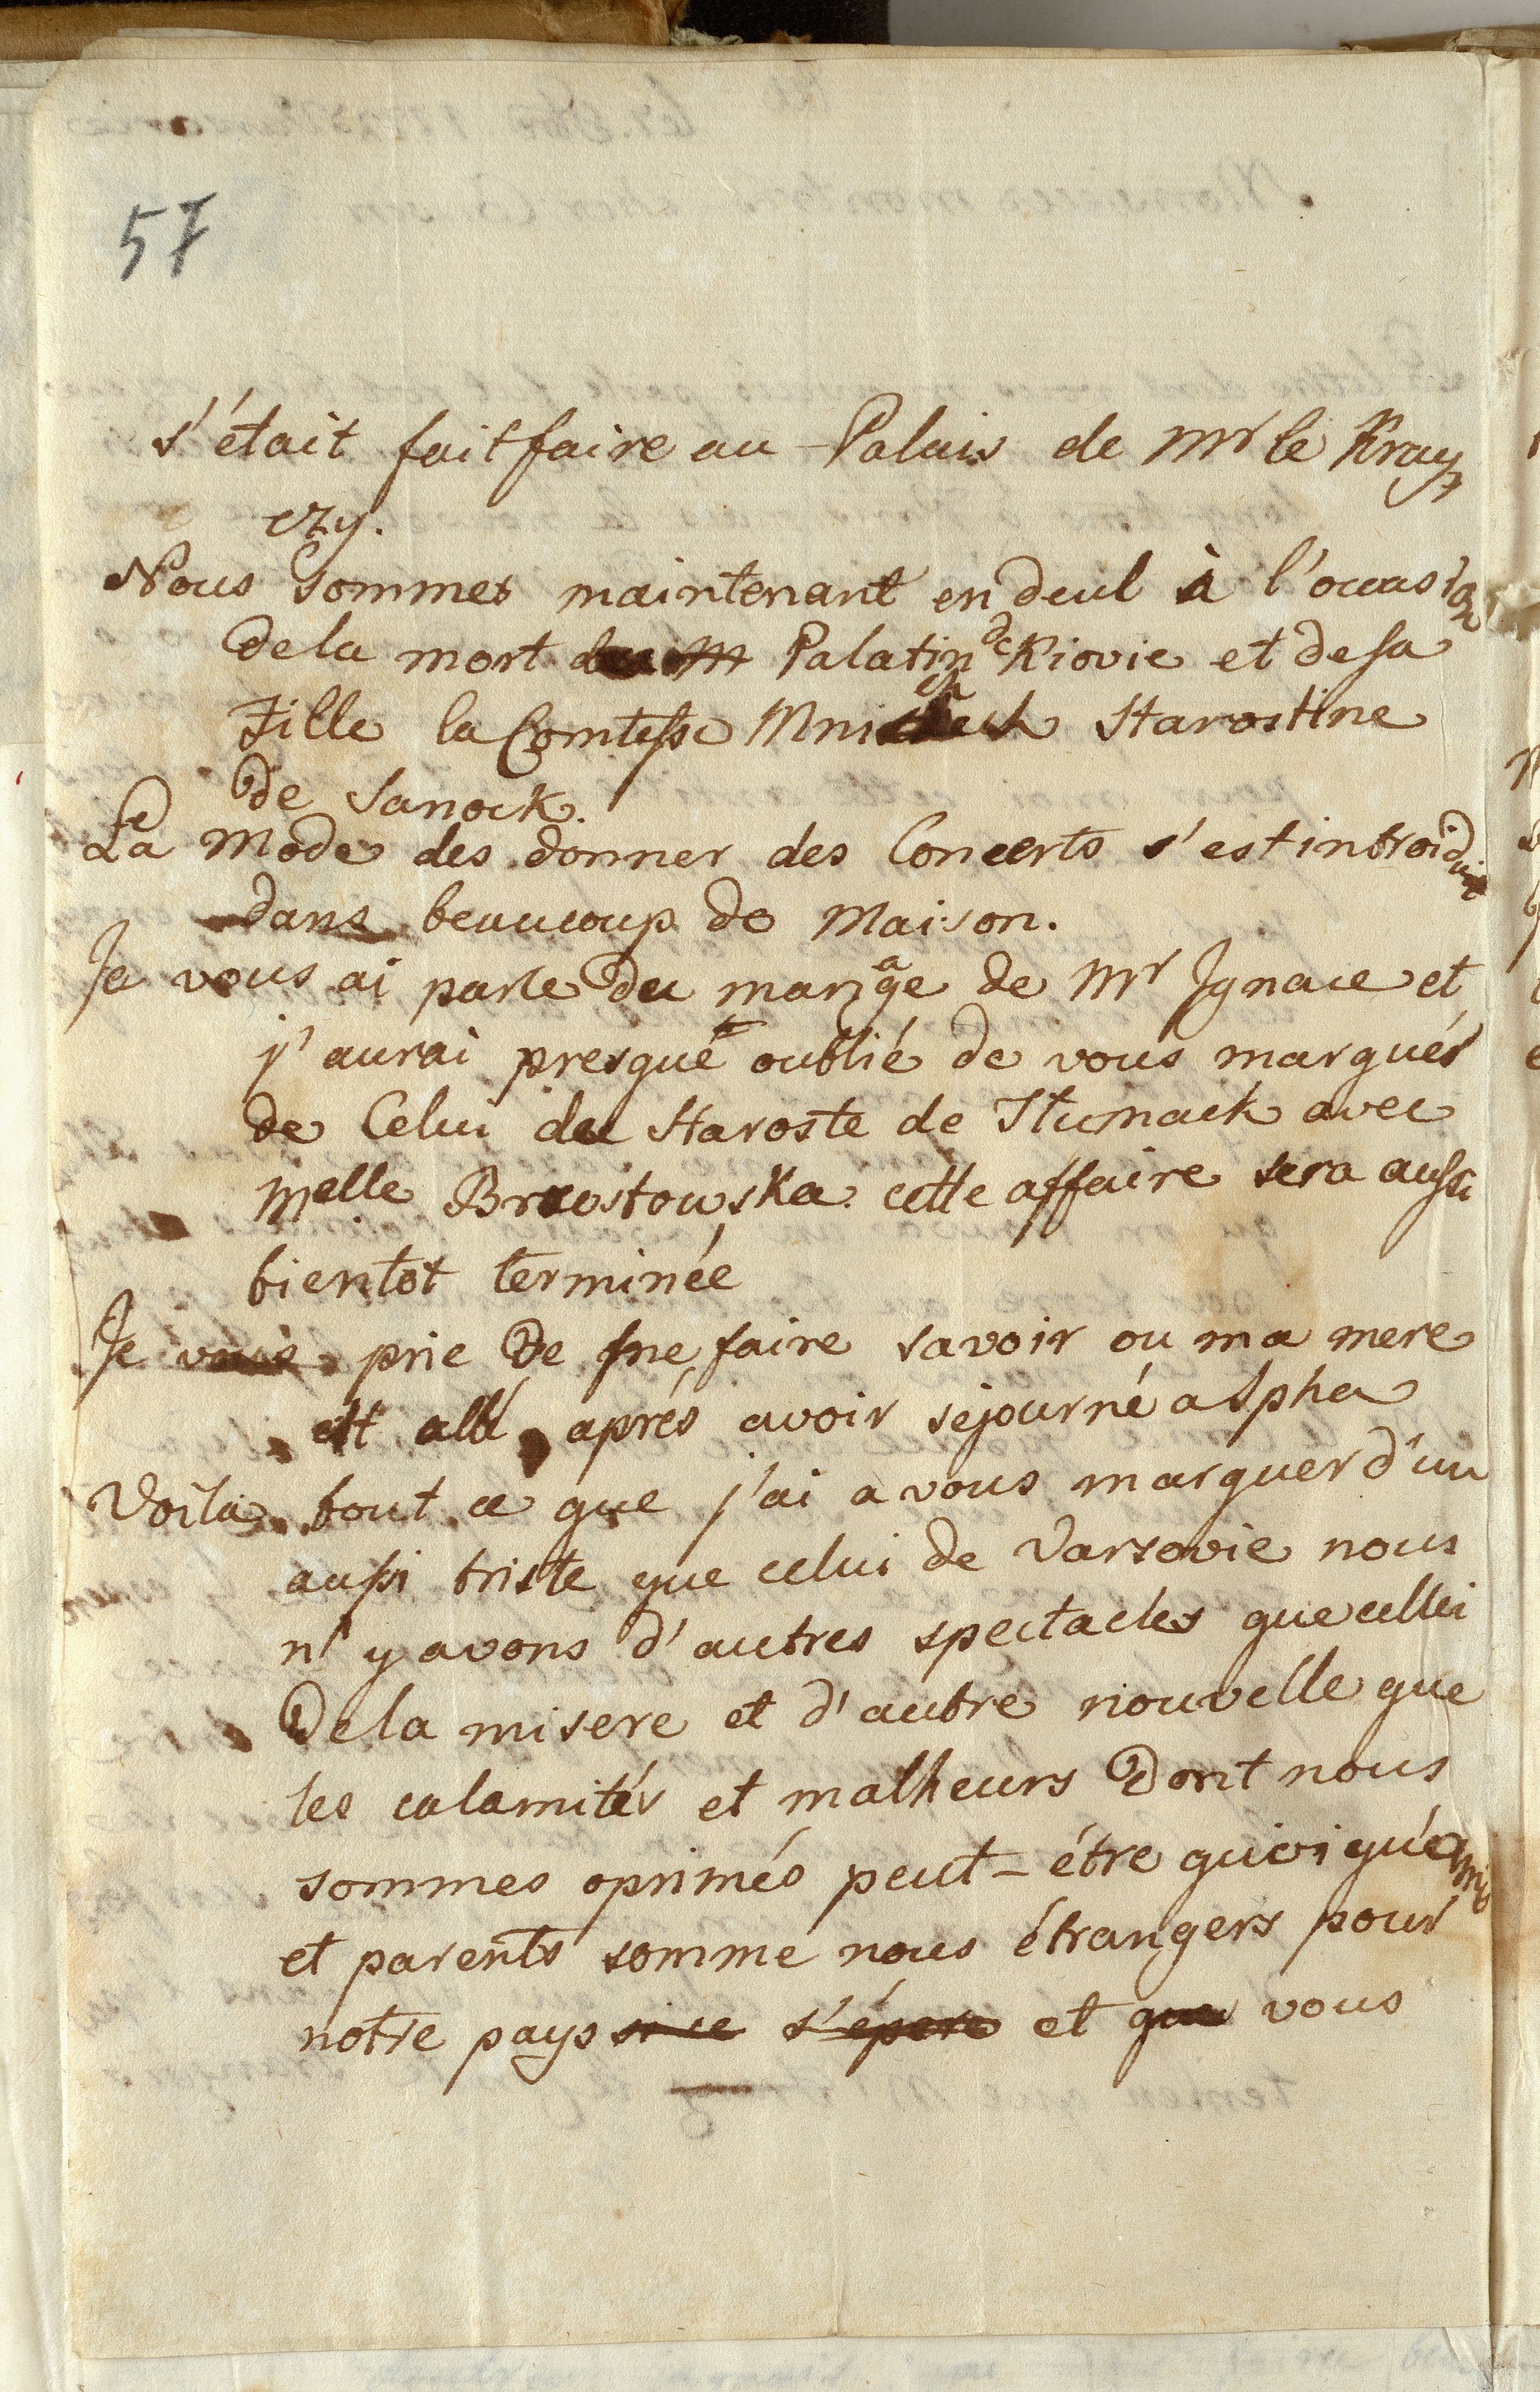 57
s'était fait faire au Palais de Mr le Kray=
czy.
Nous sommes maintenant en deul à l'occasion
de la mort du M Palatin de Kiovie et de sa
Fille la Comtesse Mnischech Starostine
de Sanock.
La Mode des donner des Concerts s'est introiduit
dans beaucoup de Maison.
Je vous ai parle du mariage de Mr Ignace et
j'aurai presqué oublié de vous marqués
de Celui du Staroste de Stumack avec
Melle Brzostowska cette affaire sera aussi
bientot terminée
Je vous prie de me faire savoir ou ma mere
est allé aprés avoir séjourné a Spha
Voila tout ce que j'ai a vous marquer d'un
aussi triste que celui de Varsovie nous
n'y avons d'autres spectacles que cellui
De la misere et d'autre nouvelle que
les calamités et malheurs Dont nous
sommes oprimés peut-étre quoi qu'amis
et parents somme nous étrangers pour
notre pays si ce s'épere et que vous